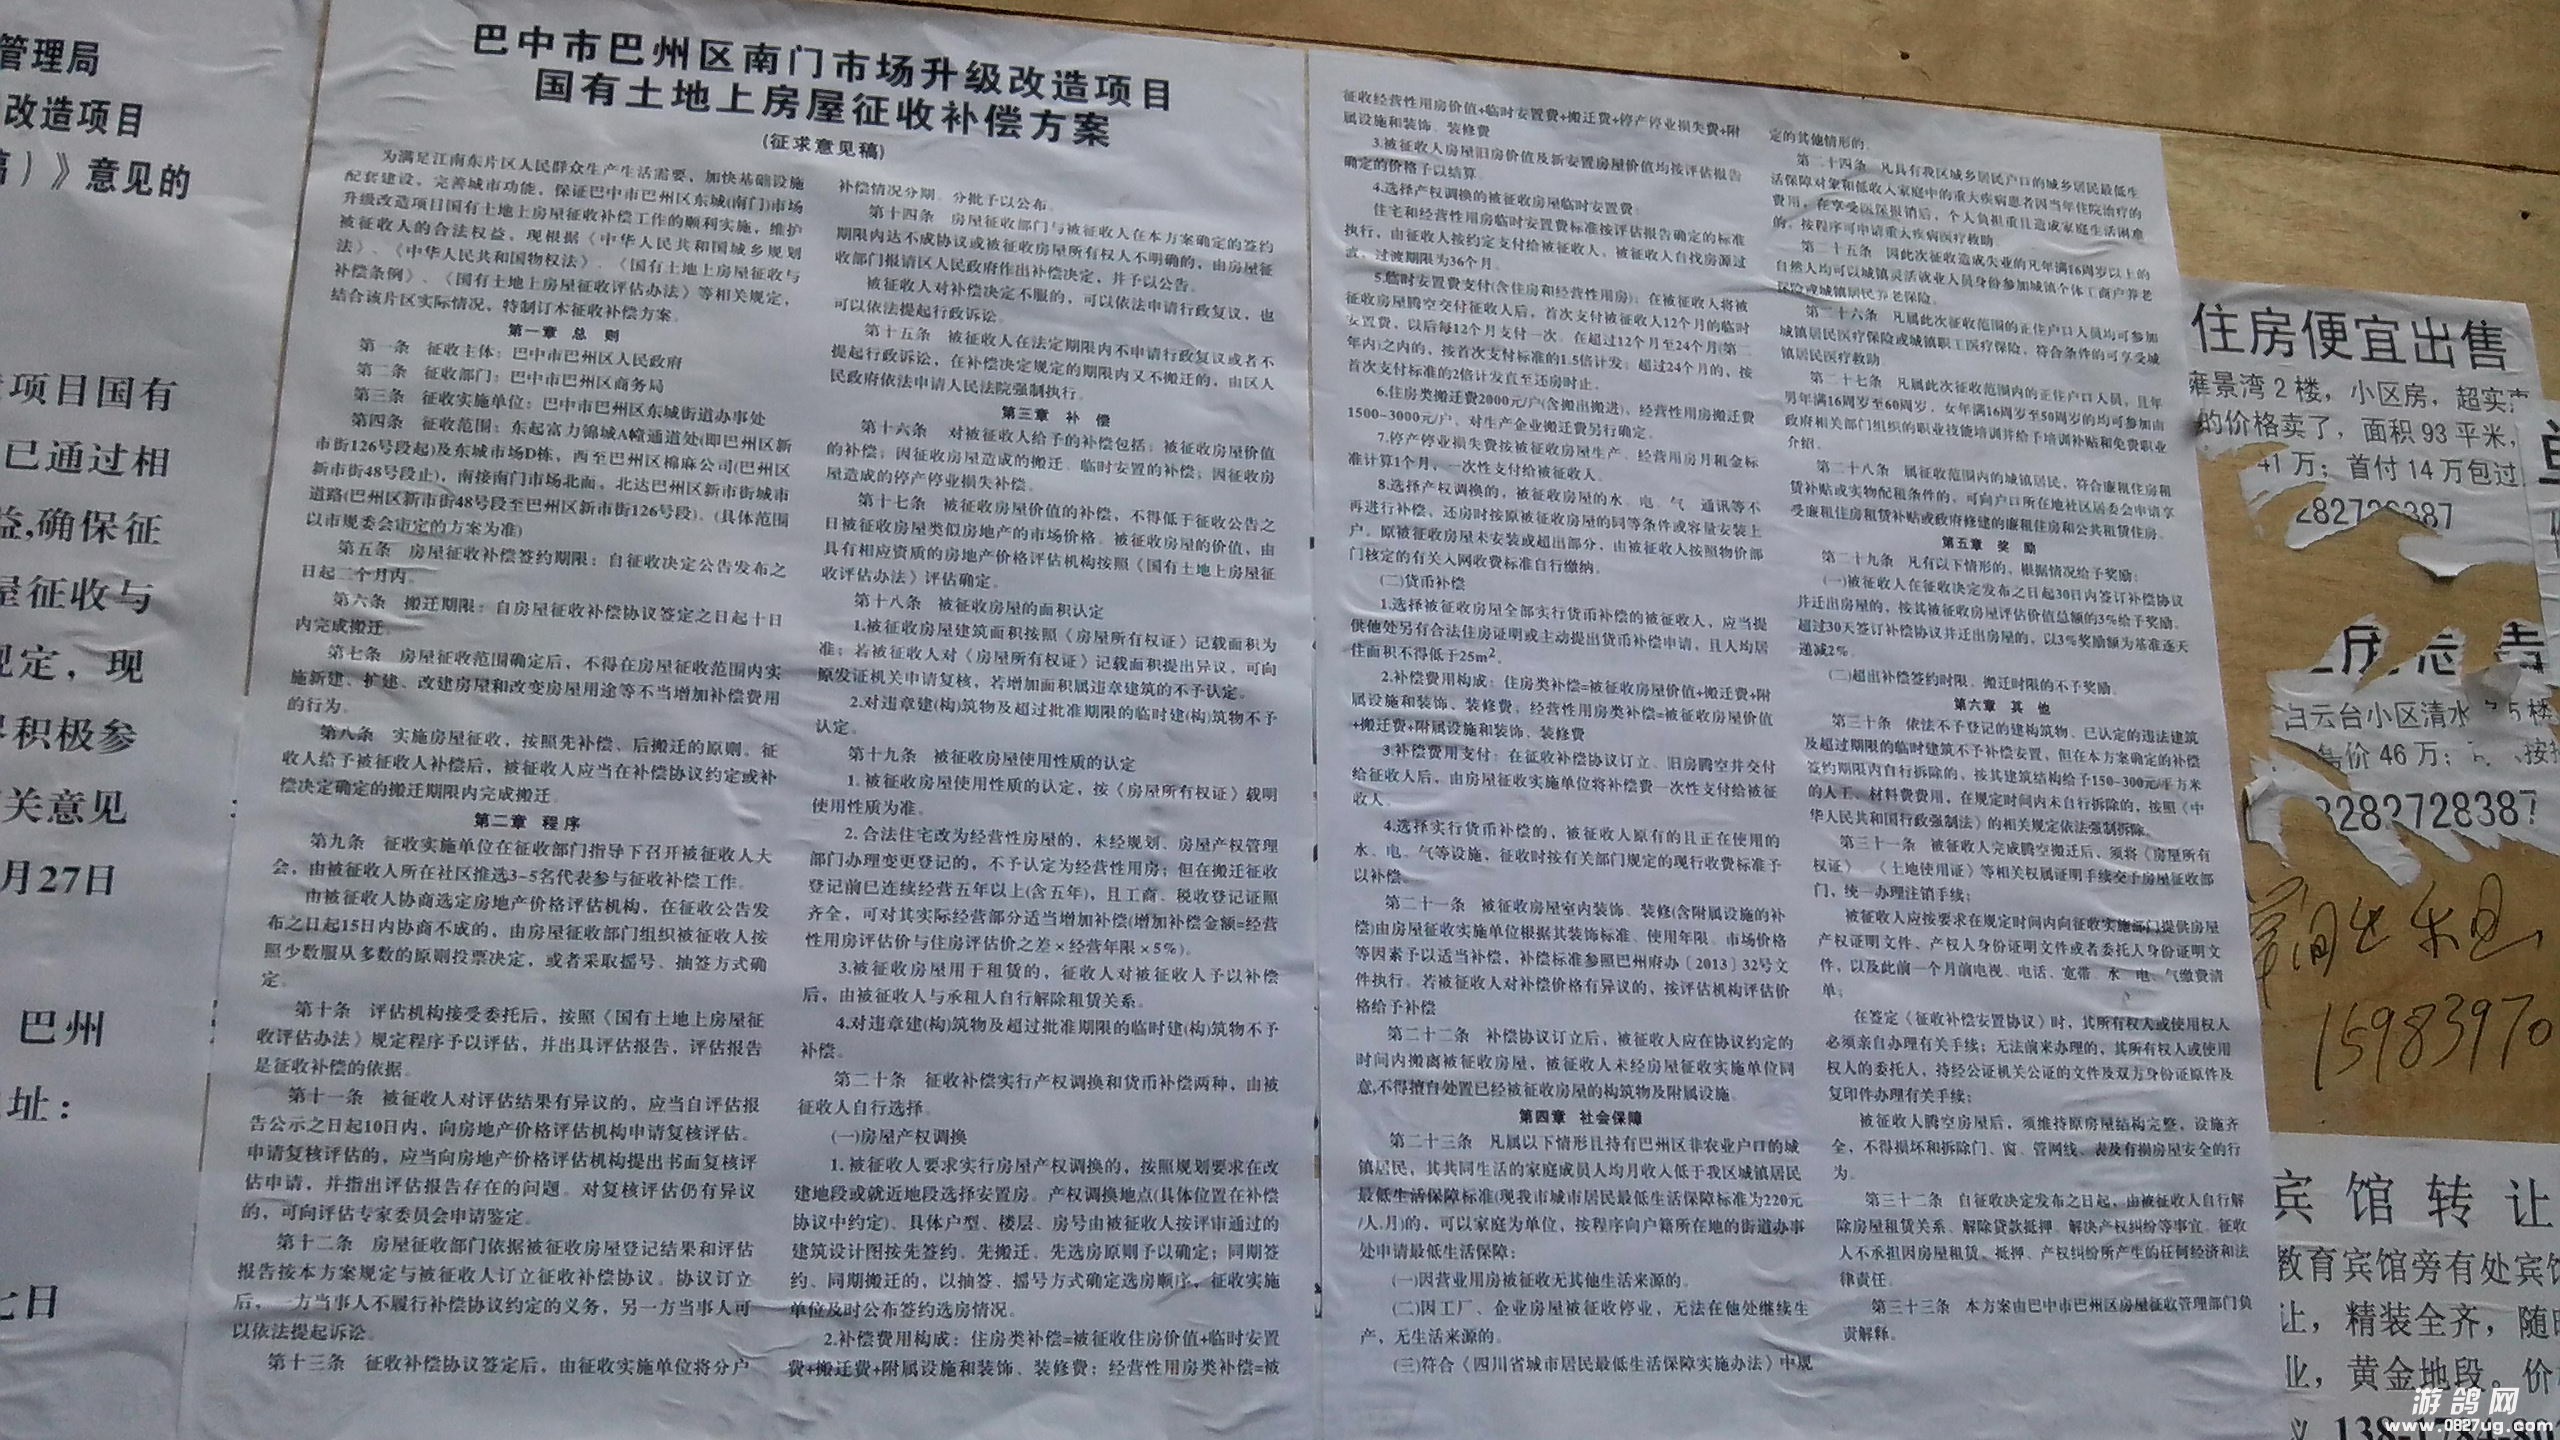 管理局
改造项目
稿）》意见的
项目国有
已通过相
益,确保征
屋征收与
规定，现
积极参
关意见
月27日
巴州
址：
七日
巴中市巴州区南门市场升级改造项目
国有土地上房屋征收补偿方案
(征求意见稿)
为满足江南东片区人民群众生产生活需要，加快基础设施
配套建设，完善城市功能，保证巴中市巴州区东城(南门)市场
升级改造项目国有土地上房屋征收补偿工作的顺利实施，维护
被征收人的合法权益，现根据《中华人民共和国城乡规划
法》、《中华人民共和国物权法》、《国有土地上房屋征收与
补偿条例》、《国有土地上房屋征收评估办法》等相关规定，
结合该片区实际情况，特制订本征收补偿方案。
第一章 总 则
第一条 征收主体：巴中市巴州区人民政府
第二条 征收部门：巴中市巴州区商务局
第三条 征收实施单位：巴中市巴州区东城街道办事处
第四条 征收范围：东起富力锦城A幢通道处(即巴州区新
市街126号段起)及东城市场D栋，西至巴州区棉麻公司(巴州区
新市街48号段止)，南接南门市场北面，北达巴州区新市街城市
道路(巴州区新市街48号段至巴州区新市街126号段)。(具体范围
以市规委会审定的方案为准)
第五条 房屋征收补偿签约期限：自征收决定公告发布之
日起二个月内。
第六条 搬迁期限：自房屋征收补偿协议签定之日起十日
内完成搬迁。
第七条 房屋征收范围确定后，不得在房屋征收范围内实
施新建、扩建、改建房屋和改变房屋用途等不当增加补偿费用
的行为。
第八条 实施房屋征收，按照先补偿、后搬迁的原则。征
收人给予被征收人补偿后，被征收人应当在补偿协议约定或补
偿决定确定的搬迁期限内完成搬迁。
第二章 程序
第九条 征收实施单位在征收部门指导下召开被征收人大
会，由被征收人所在社区推选3-5名代表参与征收补偿工作。
由被征收人协商选定房地产价格评估机构，在征收公告发
布之日起15日内协商不成的，由房屋征收部门组织被征收人按
照少数服从多数的原则投票决定，或者采取摇号、抽签方式确
定。
第十条 评估机构接受委托后，按照《国有土地上房屋征
收评估办法》规定程序予以评估，并出具评估报告，评估报告
是征收补偿的依据。
第十一条 被征收人对评估结果有异议的，应当自评估报
告公示之日起10日内，向房地产价格评估机构申请复核评估。
申请复核评估的，应当向房地产价格评估机构提出书面复核评
估申请，并指出评估报告存在的问题。对复核评估仍有异议
的，可向评估专家委员会申请鉴定。
第十二条 房屋征收部门依据被征收房屋登记结果和评估
报告按本方案规定与被征收人订立征收补偿协议。协议订立
后，一方当事人不履行补偿协议约定的义务，另一方当事人可
以依法提起诉讼。
第十三条 征收补偿协议签定后，由征收实施单位将分户
补偿情况分期、分批予以公布。
第十四条 房屋征收部门与被征收人在本方案确定的签约
期限内达不成协议或被征收房屋所有权人不明确的，由房屋征
收部门报请区人民政府作出补偿决定，并予以公告。
被征收人对补偿决定不服的，可以依法申请行政复议，也
可以依法提起行政诉讼。
第十五条 被征收人在法定期限内不申请行政复议或者不
提起行政诉讼，在补偿决定规定的期限内又不搬迁的，由区人
民政府依法申请人民法院强制执行。
第三章 补 偿
第十六条 对被征收人给予的补偿包括：被征收房屋价值
的补偿；因征收房屋造成的搬迁、临时安置的补偿；因征收房
屋造成的停产停业损失补偿。
第十七条 被征收房屋价值的补偿，不得低于征收公告之
日被征收房屋类似房地产的市场价格。被征收房屋的价值，由
具有相应资质的房地产价格评估机构按照《国有土地上房屋征
收评估办法》评估确定。
第十八条 被征收房屋的面积认定
1.被征收房屋建筑面积按照《房屋所有权证》记载面积为
准；若被征收人对《房屋所有权证》记载面积提出异议，可向
原发证机关申请复核，若增加面积属违章建筑的不予认定。
2.对违章建(构)筑物及超过批准期限的临时建(构)筑物不予
认定。
第十九条 被征收房屋使用性质的认定
1.被征收房屋使用性质的认定，按《房屋所有权证》载明
使用性质为准。
2.合法住宅改为经营性房屋的，未经规划、房屋产权管理
部门办理变更登记的，不予认定为经营性用房；但在搬迁征收
登记前已连续经营五年以上(含五年)，且工商、税收登记证照
齐全，可对其实际经营部分适当增加补偿(增加补偿金额=经营
性用房评估价与住房评估价之差×经营年限×5%)。
3.被征收房屋用于租赁的，征收人对被征收人予以补偿
后，由被征收人与承租人自行解除租赁关系。
4.对违章建(构)筑物及超过批准期限的临时建(构)筑物不予
补偿。
第二十条 征收补偿实行产权调换和货币补偿两种，由被
征收人自行选择。
(一)房屋产权调换
1.被征收人要求实行房屋产权调换的，按照规划要求在改
建地段或就近地段选择安置房。产权调换地点(具体位置在补偿
协议中约定)、具体户型、楼层、房号由被征收人按评审通过的
建筑设计图按先签约、先搬迁、先选房原则予以确定；同期签
约、同期搬迁的，以抽签、摇号方式确定选房顺序，征收实施
单位及时公布签约选房情况。
2.补偿费用构成：住房类补偿=被征收住房价值+临时安置
费+搬迁费+附属设施和装饰、装修费；经营性用房类补偿=被
征收经营性用房价值+临时安置费+搬迁费+停产停业损失费+附
属设施和装饰、装修费
3.被征收人房屋旧房价值及新安置房屋价值均按评估报告
确定的价格予以结算。
4.选择产权调换的被征收房屋临时安置费：
住宅和经营性用房临时安置费标准按评估报告确定的标准
执行，由征收人按约定支付给被征收人，被征收人自找房源过
渡，过渡期限为36个月。
5.临时安置费支付(含住房和经营性用房)：在被征收人将被
征收房屋腾空交付征收人后，首次支付被征收人12个月的临时
安置费，以后每12个月支付一次。在超过12个月至24个月(第二
年内)之内的，按首次支付标准的1.5倍计发；超过24个月的，按
首次支付标准的2倍计发直至还房时止。
6.住房类搬迁费2000元/户(含搬出搬进)、经营性用房搬迁费
1500-3000元/户，对生产企业搬迁费另行确定。
7.停产停业损失费按被征收房屋生产、经营用房月租金标
准计算1个月，一次性支付给被征收人。
8.选择产权调换的，被征收房屋的水、电、气、通讯等不
再进行补偿，还房时按原被征收房屋的同等条件或容量安装上
户。原被征收房屋未安装或超出部分，由被征收人按照物价部
门核定的有关入网收费标准自行缴纳。
(二)货币补偿
1.选择被征收房屋全部实行货币补偿的被征收人，应当提
供他处另有合法住房证明或主动提出货币补偿申请，且人均居
住面积不得低于25m²。
2.补偿费用构成：住房类补偿=被征收房屋价值+搬迁费+附
属设施和装饰、装修费；经营性用房类补偿=被征收房屋价值
+搬迁费+附属设施和装饰、装修费
3.补偿费用支付：在征收补偿协议订立、旧房腾空并交付
给征收人后，由房屋征收实施单位将补偿费一次性支付给被征
收人。
4.选择实行货币补偿的，被征收人原有的且正在使用的
水、电、气等设施，征收时按有关部门规定的现行收费标准予
以补偿。
第二十一条 被征收房屋室内装饰、装修(含附属设施的补
偿)由房屋征收实施单位根据其装饰标准、使用年限、市场价格
等因素予以适当补偿，补偿标准参照巴州府办〔2013〕32号文
件执行。若被征收人对补偿价格有异议的，按评估机构评估价
格给予补偿
第二十二条 补偿协议订立后，被征收人应在协议约定的
时间内搬离被征收房屋，被征收人未经房屋征收实施单位同
意,不得擅自处置已经被征收房屋的构筑物及附属设施。
第四章 社会保障
第二十三条 凡属以下情形且持有巴州区非农业户口的城
镇居民，其共同生活的家庭成员人均月收入低于我区城镇居民
最低生活保障标准(现我市城市居民最低生活保障标准为220元
/人.月)的，可以家庭为单位，按程序向户籍所在地的街道办事
处申请最低生活保障：
(一)因营业用房被征收无其他生活来源的。
(二)因工厂、企业房屋被征收停业，无法在他处继续生
产，无生活来源的。
(三)符合《四川省城市居民最低生活保障实施办法》中规
定的其他情形的。
第二十四条 凡具有我区城乡居民户口的城乡居民最低生
活保障对象和低收入家庭中的重大疾病患者因当年住院治疗的
费用，在享受医保报销后，个人负担重且造成家庭生活困难
的，按程序可申请重大疾病医疗救助。
第二十五条 因此次征收造成失业的凡年满16周岁以上的
自然人均可以城镇灵活就业人员身份参加城镇个体工商户养老
保险或城镇居民养老保险。
第二十六条 凡属此次征收范围的正住户口人员均可参加
城镇居民医疗保险或城镇职工医疗保险，符合条件的可享受城
镇居民医疗救助。
第二十七条 凡属此次征收范围内的正住户口人员，且年
男年满16周岁至60周岁、女年满16周岁至50周岁的均可参加由
政府相关部门组织的职业技能培训并给予培训补贴和免费职业
介绍。
第二十八条 属征收范围内的城镇居民，符合廉租住房租
赁补贴或实物配租条件的，可向户口所在地社区居委会申请享
受廉租住房租赁补贴或政府修建的廉租住房和公共租赁住房。
第五章 奖 励
第二十九条 凡有以下情形的，根据情况给予奖励：
(一)被征收人在征收决定发布之日起30日内签订补偿协议
并迁出房屋的，按其被征收房屋评估价值总额的3%给予奖励。
超过30天签订补偿协议并迁出房屋的，以3%奖励额为基准逐天
递减2%。
(二)超出补偿签约时限、搬迁时限的不予奖励。
第六章 其 他
第三十条 依法不予登记的建构筑物、已认定的违法建筑
及超过期限的临时建筑不予补偿安置，但在本方案确定的补偿
签约期限内自行拆除的，按其建筑结构给予150-300元/平方米
的人工、材料费费用，在规定时间内未自行拆除的，按照《中
华人民共和国行政强制法》的相关规定依法强制拆除。
第三十一条 被征收人完成腾空搬迁后，须将《房屋所有
权证》、《土地使用证》等相关权属证明手续交予房屋征收部
门，统一办理注销手续；
被征收人应按要求在规定时间内向征收实施部门提供房屋
产权证明文件、产权人身份证明文件或者委托人身份证明文
件，以及此前一个月前电视、电话、宽带、水、电、气缴费清
单；
在签定《征收补偿安置协议》时，其所有权人或使用权人
必须亲自办理有关手续；无法前来办理的，其所有权人或使用
权人的委托人，持经公证机关公证的文件及双方身份证原件及
复印件办理有关手续；
被征收人腾空房屋后，须维持原房屋结构完整，设施齐
全，不得损坏和拆除门、窗、管网线、表及有损房屋安全的行
为。
第三十二条 自征收决定发布之日起，由被征收人自行解
除房屋租赁关系、解除贷款抵押、解决产权纠纷等事宜。征收
人不承担因房屋租赁、抵押、产权纠纷所产生的任何经济和法
律责任。
第三十三条 本方案由巴中市巴州区房屋征收管理部门负
责解释。
住房便宜出售
雍景湾2楼，小区房，超实惠
的价格卖了，面积93平米，
41万；首付14万包过
白云台小区清水 5楼
售价46万；
2282728387
15983970
宾馆转让
教育宾馆旁有处宾馆
让，精装全齐，随时
业，黄金地段。价
游鸽网
www.0827ug.com